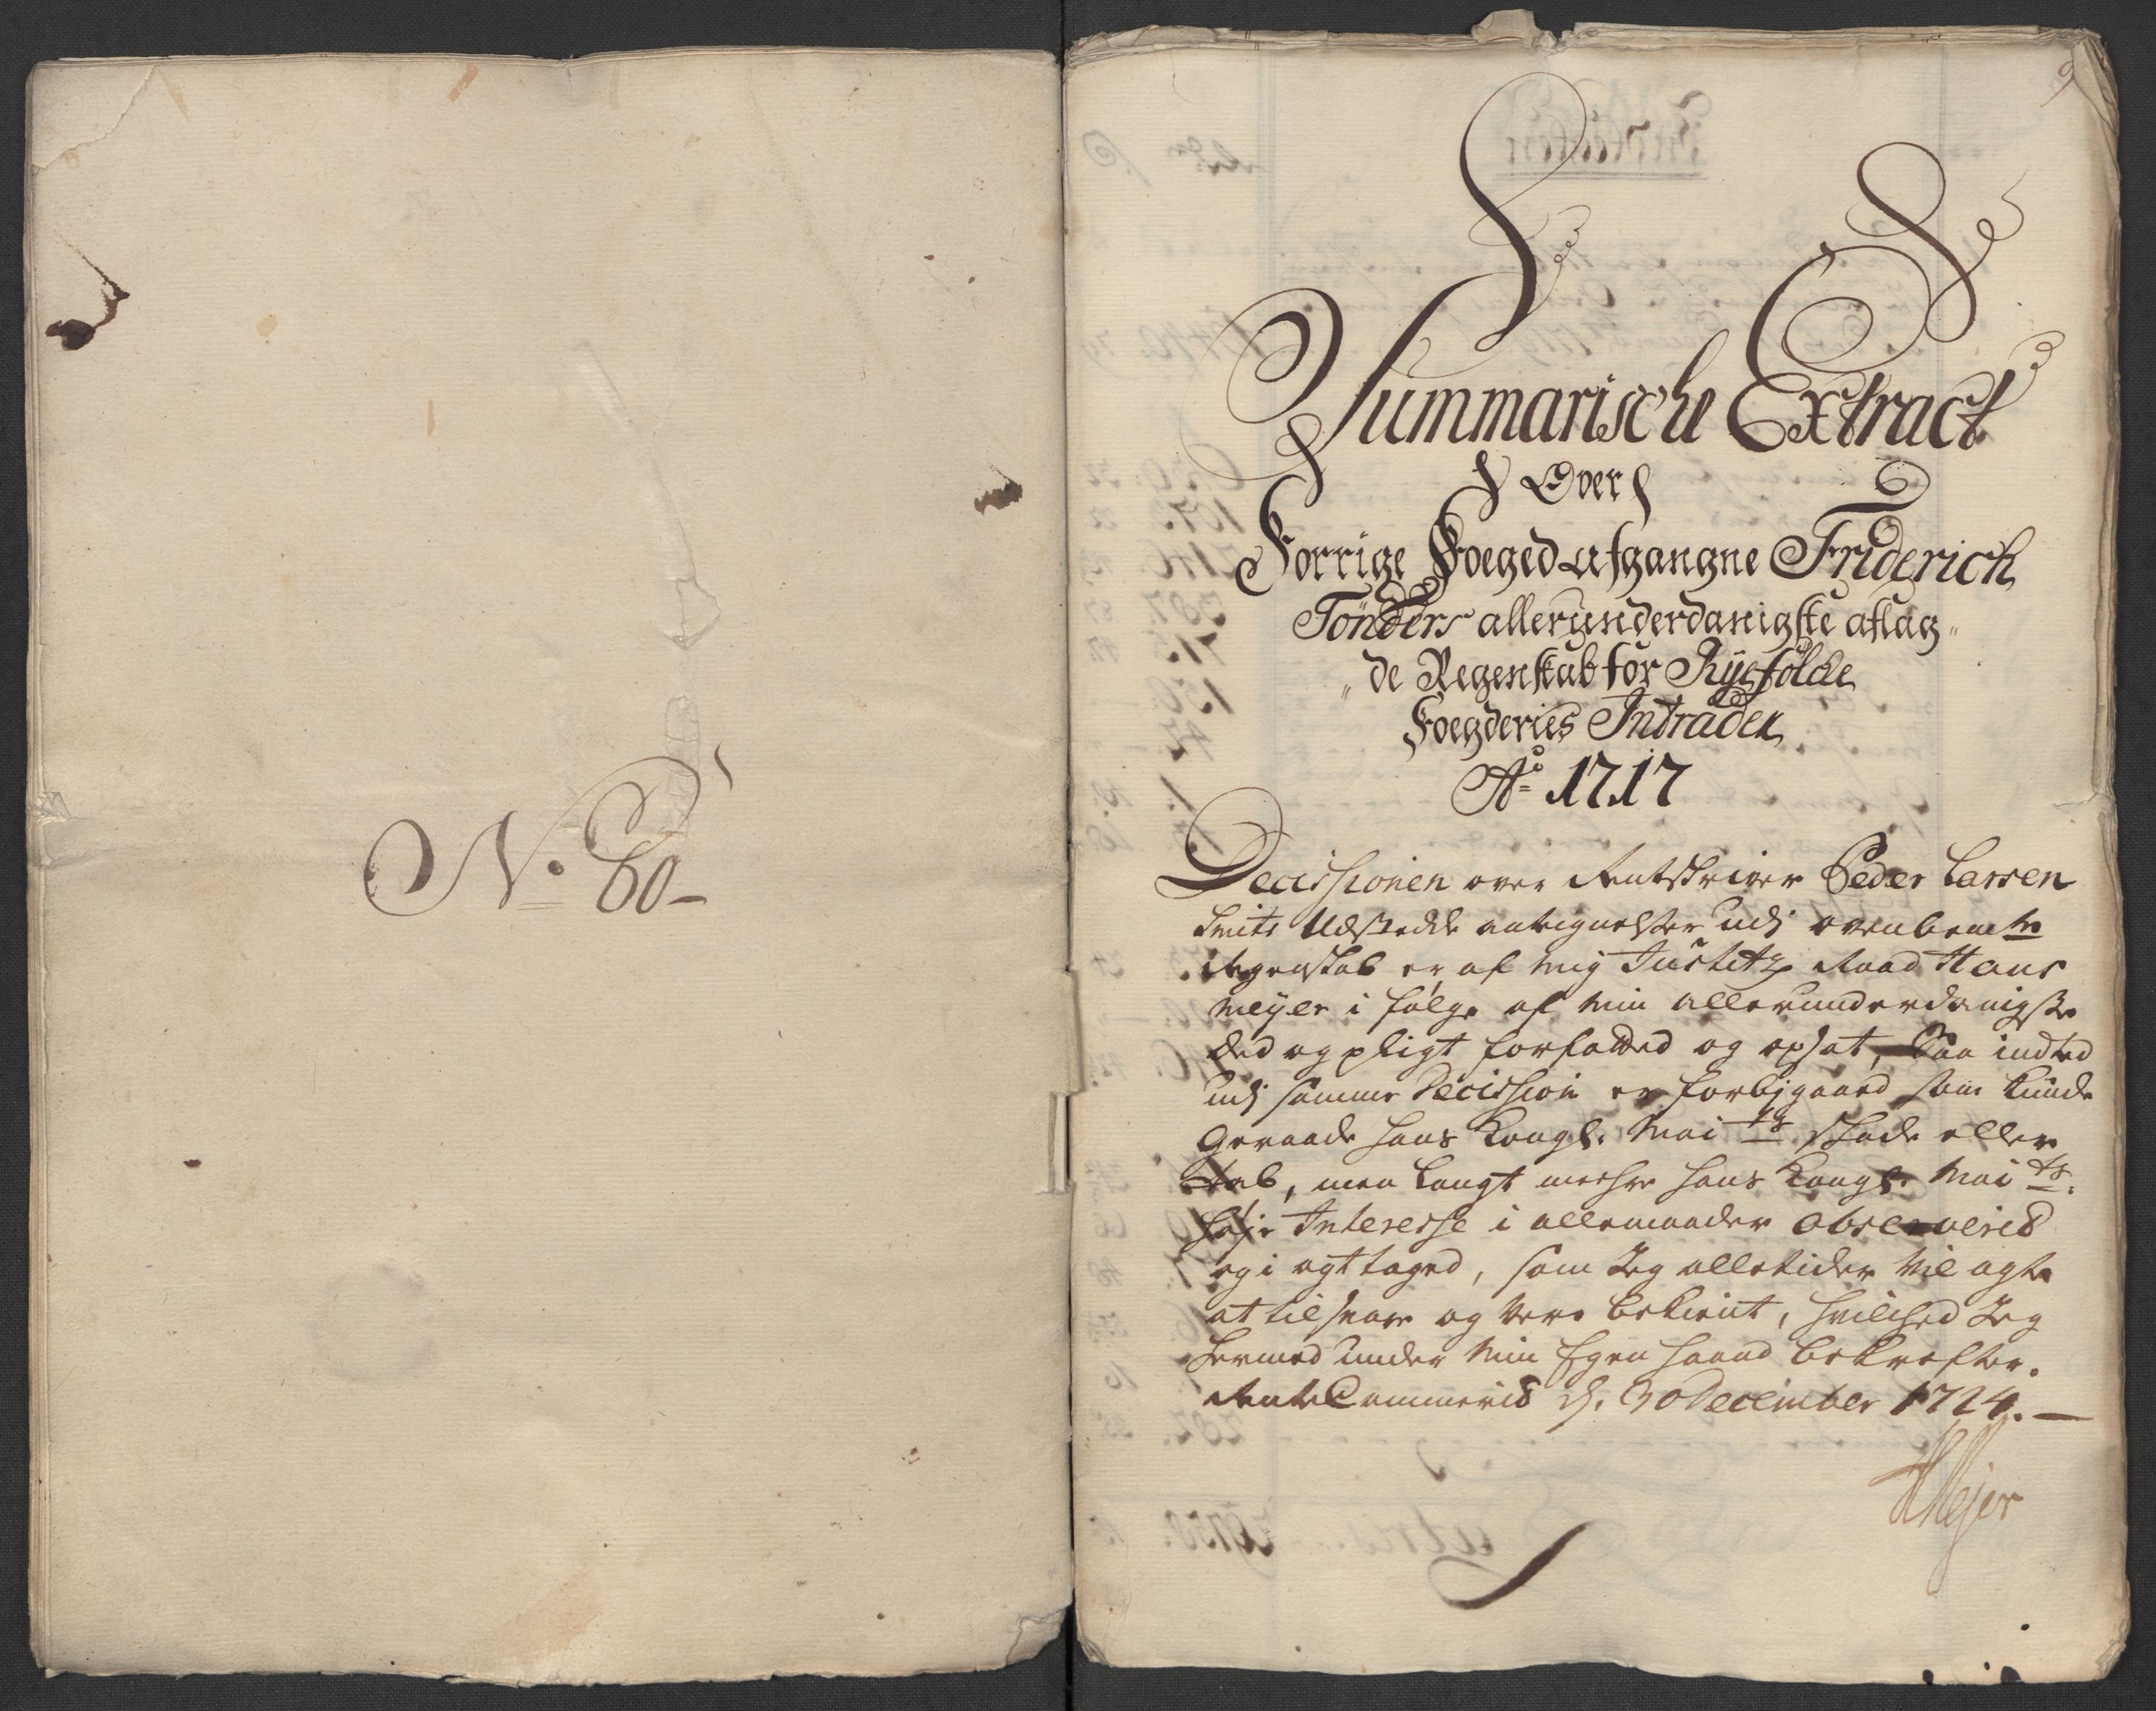 No. 60-
9
Summarische Extract
Over
Forrige Foeged Afgangne Friderich
Tönders allerunderdanigste aflag„
„de Regenskab for Ryefölche
Foegderies Intrader
Ao 1717
Decissionen over Rentskriver Peder Larsen
Smits Udstedde antegnelser udj ovenbemte
Regenskab er af mig Justitz Raad Hans
Meyer i følge af min allerunderdanigste
Eed og pligt forfatted og opsat, Saa indted
udj samme Decission er forbjgaaed som kunde
Geraade hans Kongl. Maits skade eller
tab, men langt meehre hans Kongl. Maits.
høje Interesse i allemaader observerid
og i agt taged, som Jeg alletider vil agte
at tilsvare og vere bekient, hvilched Jeg
hermed under min Egen haand bekrefter.
RenteCammerid d. 30 December 1724.
HMejer